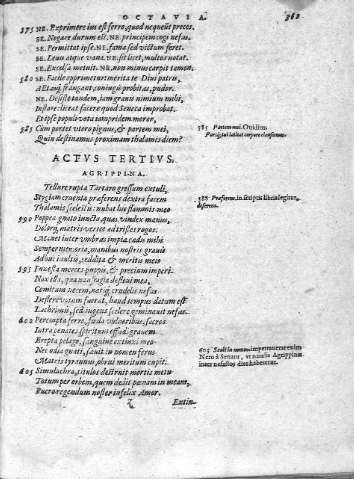 OCTAVIA.
575 NE. Exprimere ius est ferro, quod nequeunt preces.
SE. Negare durum est. NE. principem cogi nefas.
SE. Permittat ipse. NE. fama sed victum feret.
SE. Leuis atque vana. NE. sit licet, multos notat.
SE. Excelsa metuit. NE. non minus carpit tamen.
580 SE. Facile opprimetur. merita te Diui patris,
Aetasque frangat, coniugis probitas, pudor.
NE. Desiste tandem, iam grauis nimium mihi,
Instare: liceat facere quod Seneca improbat.
Et ipse populi vota iampridem moror,
585 Cum portet vtero pignus, & partem mei,
Quin destinamus proximam thalamis diem?
ACTVS TERTIVS.
AGRIPPINA.
Tellure rupta Tartaro gressum extuli,
Stygiam cruenta praeferens dextra facem
Thalamis scelestis: nubat his flammis meo
590 Poppea gnato iuncta, quas vindex manus,
Dolorque matris vertet ad tristes rogos.
Manet inter vmbras impiae caedis mihi
Semper memoria, manibus nostris grauis
Adhuc inultis, reddita & meritis meis
595 Funesta merces puppis, & precium imperi.
Nox illa, qua naufragia defleui mea,
Comitum necem, natique crudelis nefas
Deflere votum fuerat. haud tempus datum est
Lachrimis, sed ingens scelere geminauit nefas.
600 Perempta ferro, foeda vulneribus, sacros
Intra penates spiritum effudi grauem
Erepta pelago, sanguine extinxi meo
Nec odia gnati. saeuit in nomen ferus
Matris tyrannus, obrui meritum cupit.
605 Simulachra, titulos destruit mortis metu
Totum per orbem, quem dedit poenam in meam,
Puero regendum noster infelix Amor.
Z Extin-
585 Partem mei.
588 Praeferens.